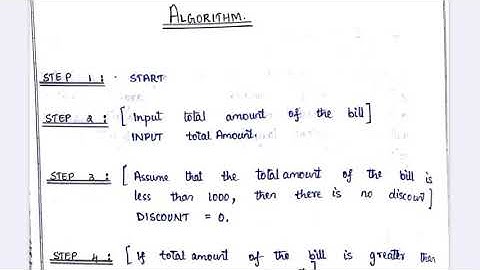 ALGORITHM.
STEP 1: START
STEP 2: [Input total amount of the bill]
INPUT total Amount.
STEP 3: [Assume that the total amount of the bill is
less than 1000, then there is no discount]
DISCOUNT = 0.
STEP 4: [If total amount of the bill is greater than